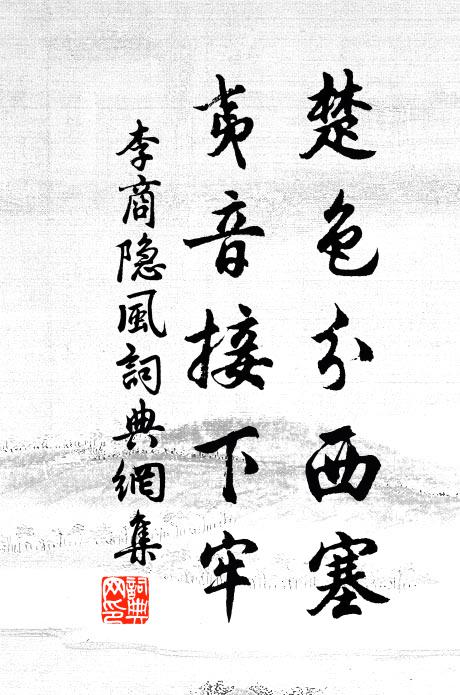 楚色分西塞
夷音接下牢
李商隐風詞典網集
詞典
网印